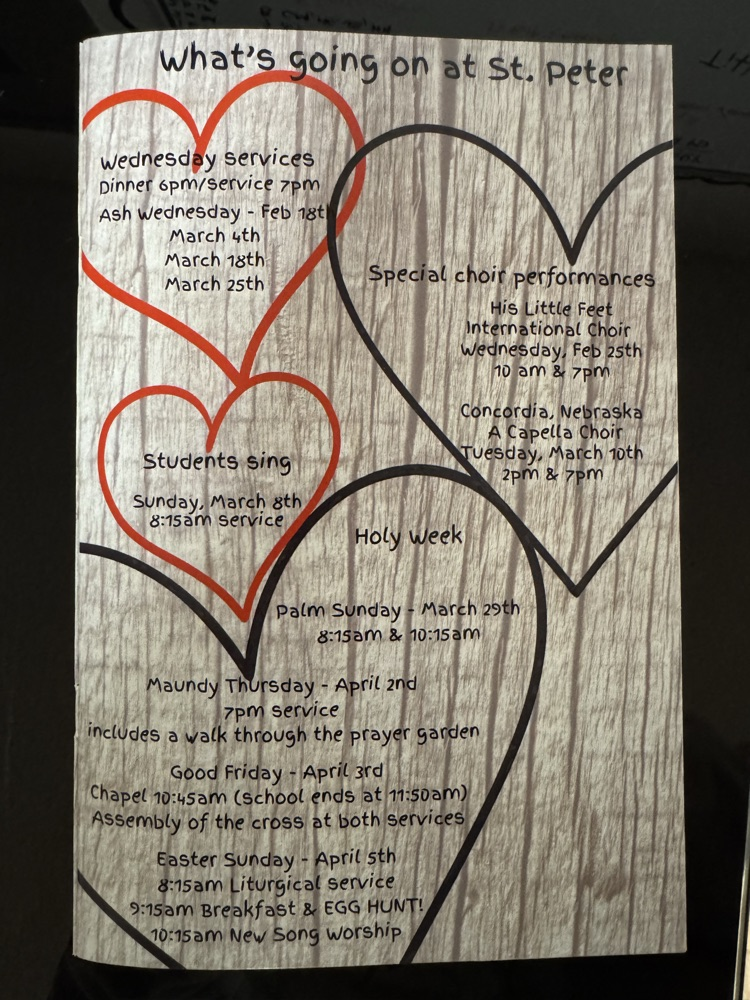 What's going on at St. Peter
Wednesday services
Dinner 6pm/service 7pm
Ash Wednesday - Feb 18th
March 4th
March 18th
March 25th
Special choir performances
His Little Feet
International Choir
Wednesday, Feb 25th
10 am & 7pm
Concordia, Nebraska
A Capella Choir
Tuesday, March 10th
2pm & 7pm
Students sing
Sunday, March 8th
8:15am service
Holy Week
Palm Sunday - March 29th
8:15am & 10:15am
Maundy Thursday - April 2nd
7pm service
includes a walk through the prayer garden
Good Friday - April 3rd
Chapel 10:45am (school ends at 11:50am)
Assembly of the cross at both services
Easter Sunday - April 5th
8:15am Liturgical service
9:15am Breakfast & EGG HUNT!
10:15am New Song Worship